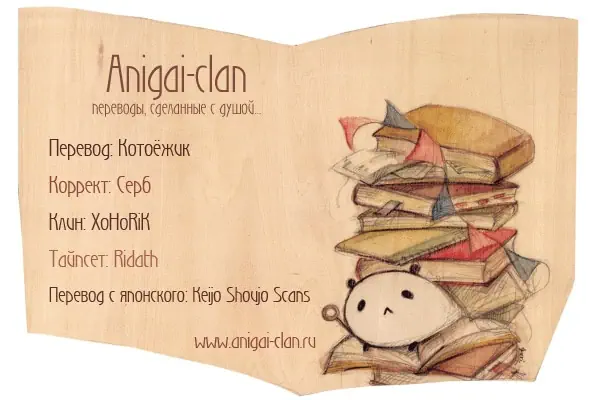 Anigai-clan
переводы, сделанные с душой...
Перевод: Котоёжик
Коррект: Серб
Клин: XoHoRiK
Тайпсет: Ridath
Перевод с японского: Keijo Shoujo Scans
www.anigai-clan.ru